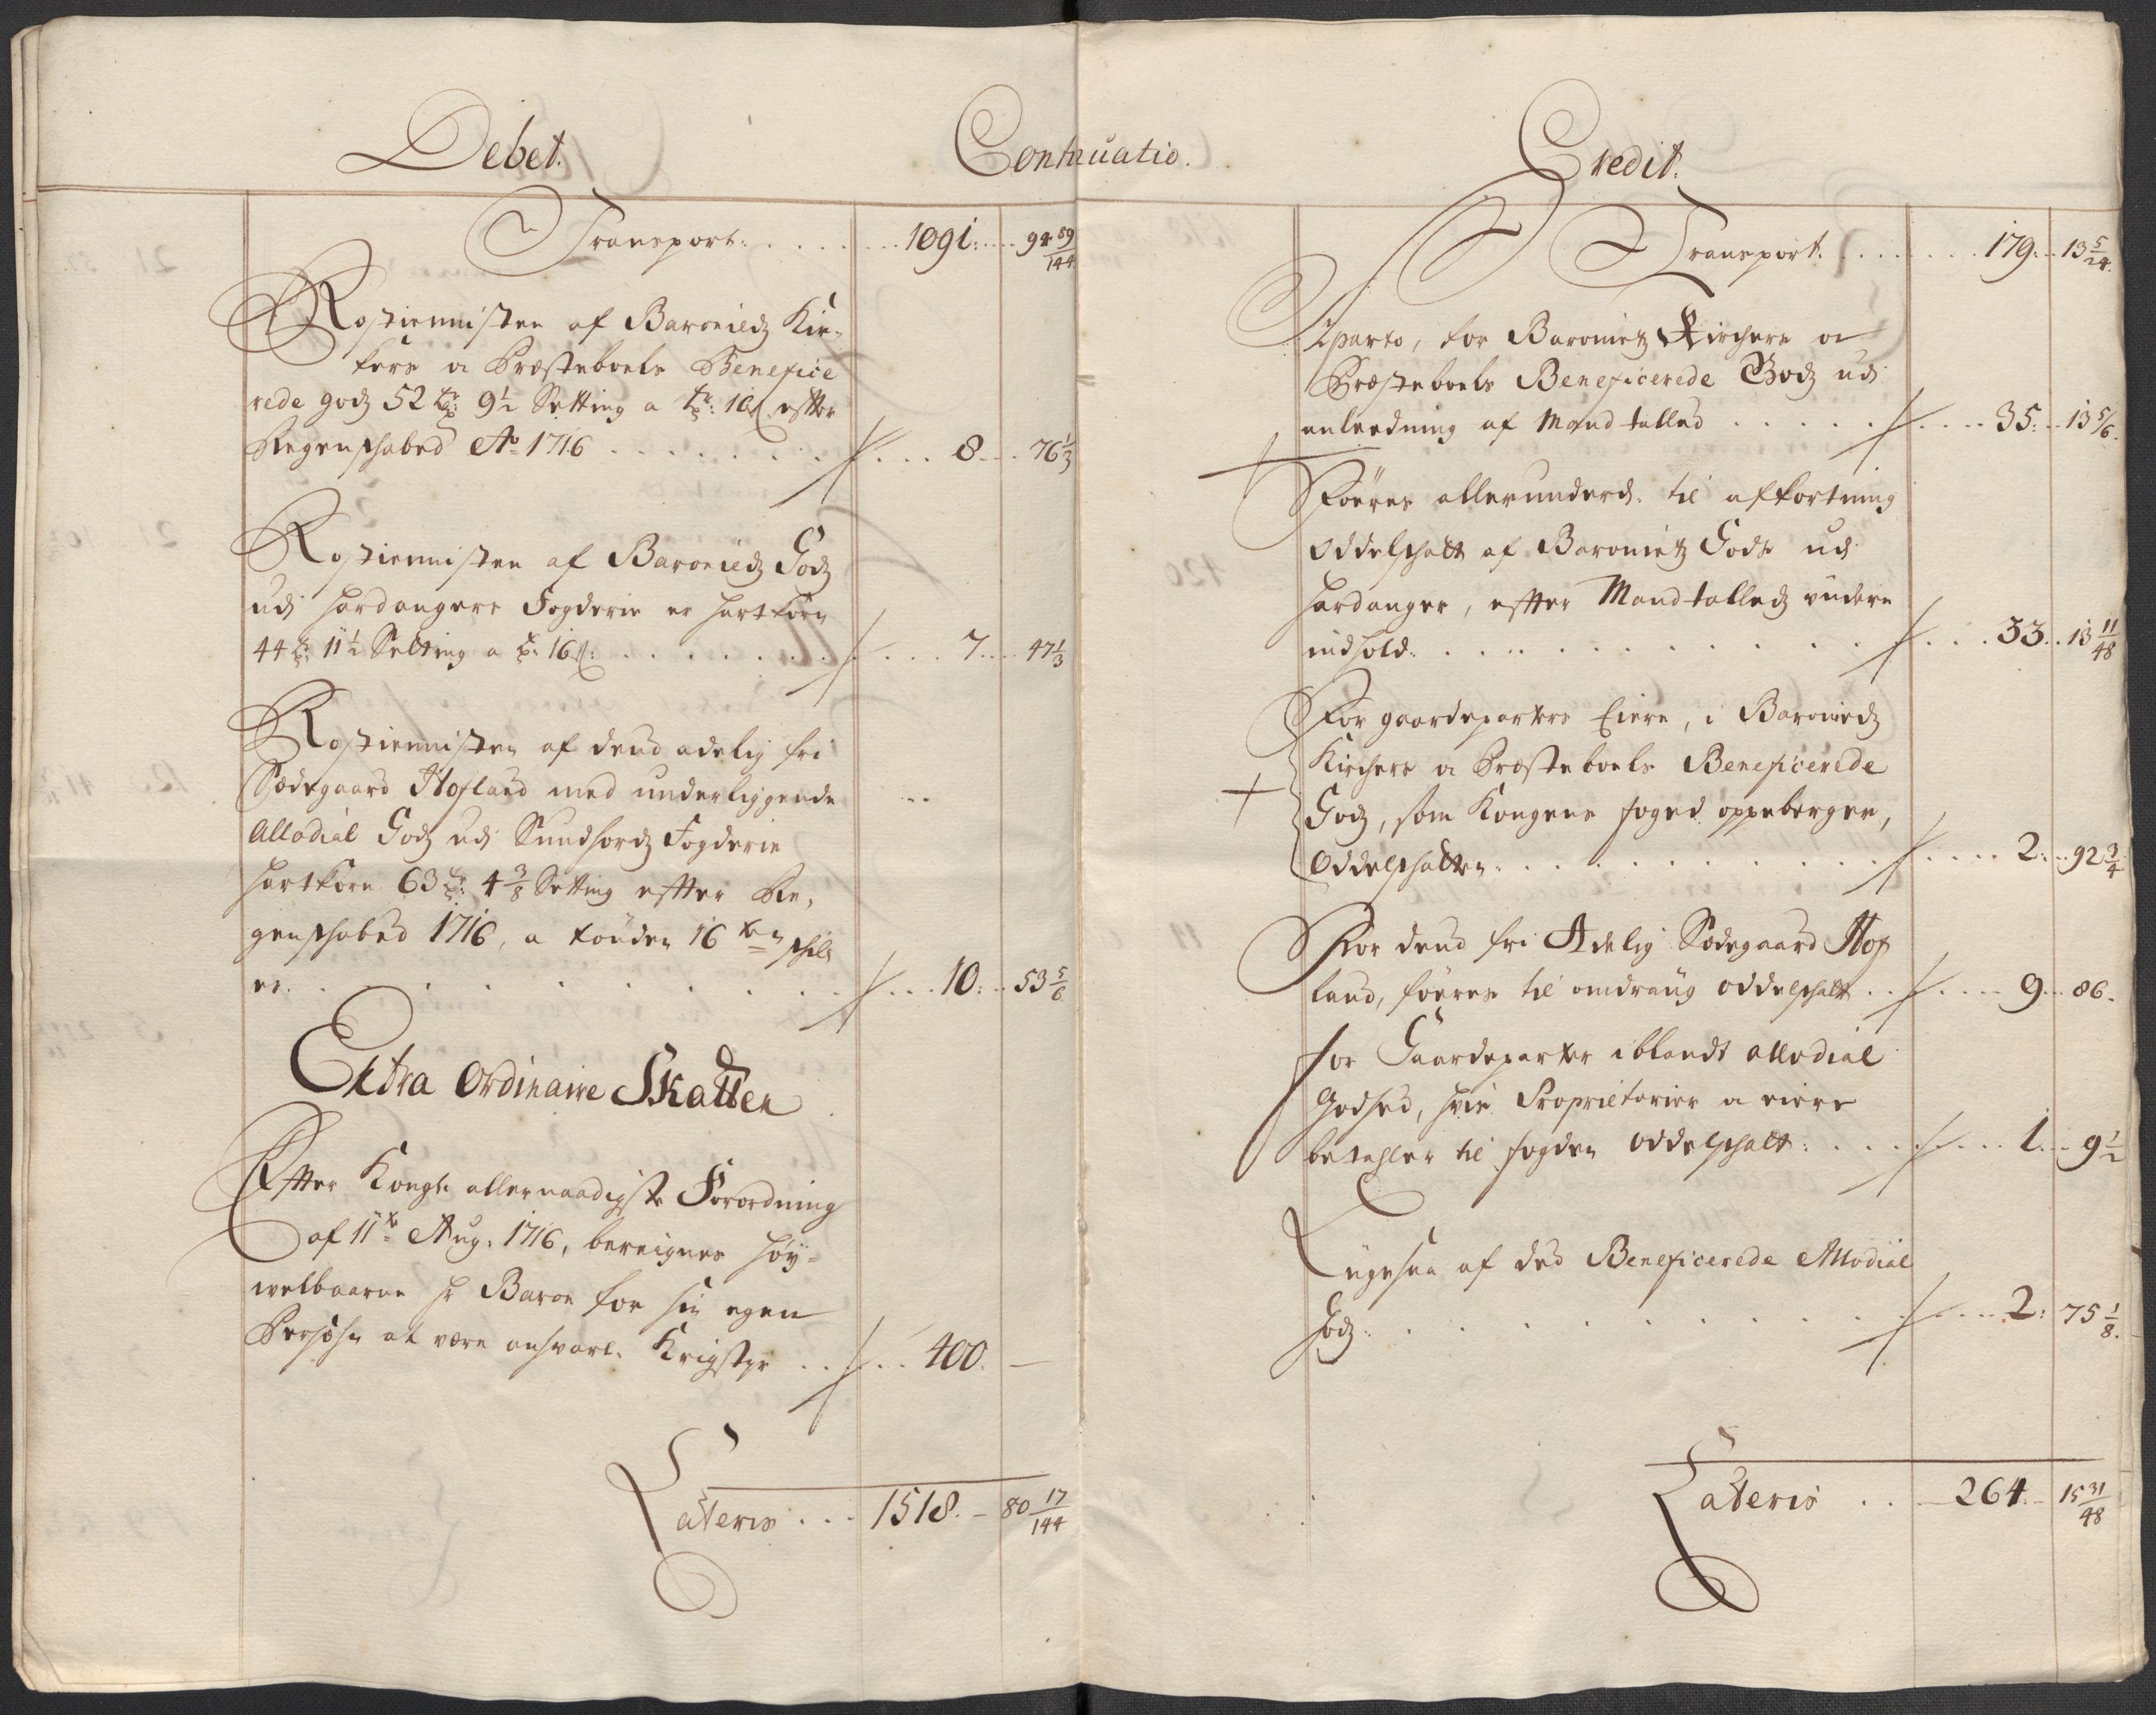 Debet.
Continuatio.
Transport. . . . . . . 1091: . . . 94 89/144
Rostienisten af Baronied Kir-
kers oc Præsteboels Benefice
rede godz 52 9½ Setting a 16 efter
Regenskabed Ao 1716 . . . . . . . 8 . . 76⅓
Rostienisten af Baronied Godz
udj Hardangers Fogderie er Hartkorn
44 11½ Setting a 16 . . . . . . . 7 . . 47⅓
Rostienisten af dend adelig fri
Sædegaard Hofland med underliggende
Allodial Godz udj Sundhordz Fogderie
Hartkorn 63 4⅜ Setting efter Re-
genskabed 1716, a tønden 16ten skill
er. . . . . . . . . . 10: . . 53⅚
Extra Ordinaire Skatten
Efter Kongl. allernaadigste Forordning
af 11te Aug: 1716, beregnes Høy-
welbaarne Hr Baron for sin egen
Persohn at være ansvarl. Krigstyr . . . . 400. —
Lateris . . . 1518. — 80 17/144
Credit.
Transport. . . . . . . 179: . . 13 5/24.
Aparto, for Baronietz Kirchers oc
Præsteboels Beneficerede Godz udj
anleedning af Mandtalled . . . . . . 35: . . 13 5/6.
Føeres allerunderd. til afkortning
Oddelskatt af Baronietz Gods udj
Hardanger, efter Mandtalledz videre
indhold. . . . . . . . . . 33. . 13 11/48
For gaardeparters Eiere, i Baroniedz
Kirchers oc Præsteboels Beneficerede
Godz, som Kongens foged oppeberger,
Oddelskatten. . . . . . . . . 2: . . 92¾
For dend fri Adelig Sædegaard Hof
land, føeres til omdraug Oddelskatt . . . . 9 . . 86.
for Gaardeparter iblandt allodial
Godsed, hvis Proprietarier oc eiere
betahler til fogden Oddelskatt: . . . . 1 . . 9½
Ligesaa af ded Beneficerede Allodial
Godz: . . . . . . . . . 2: 75⅛.
Lateris . . — 264. — 15 31/48